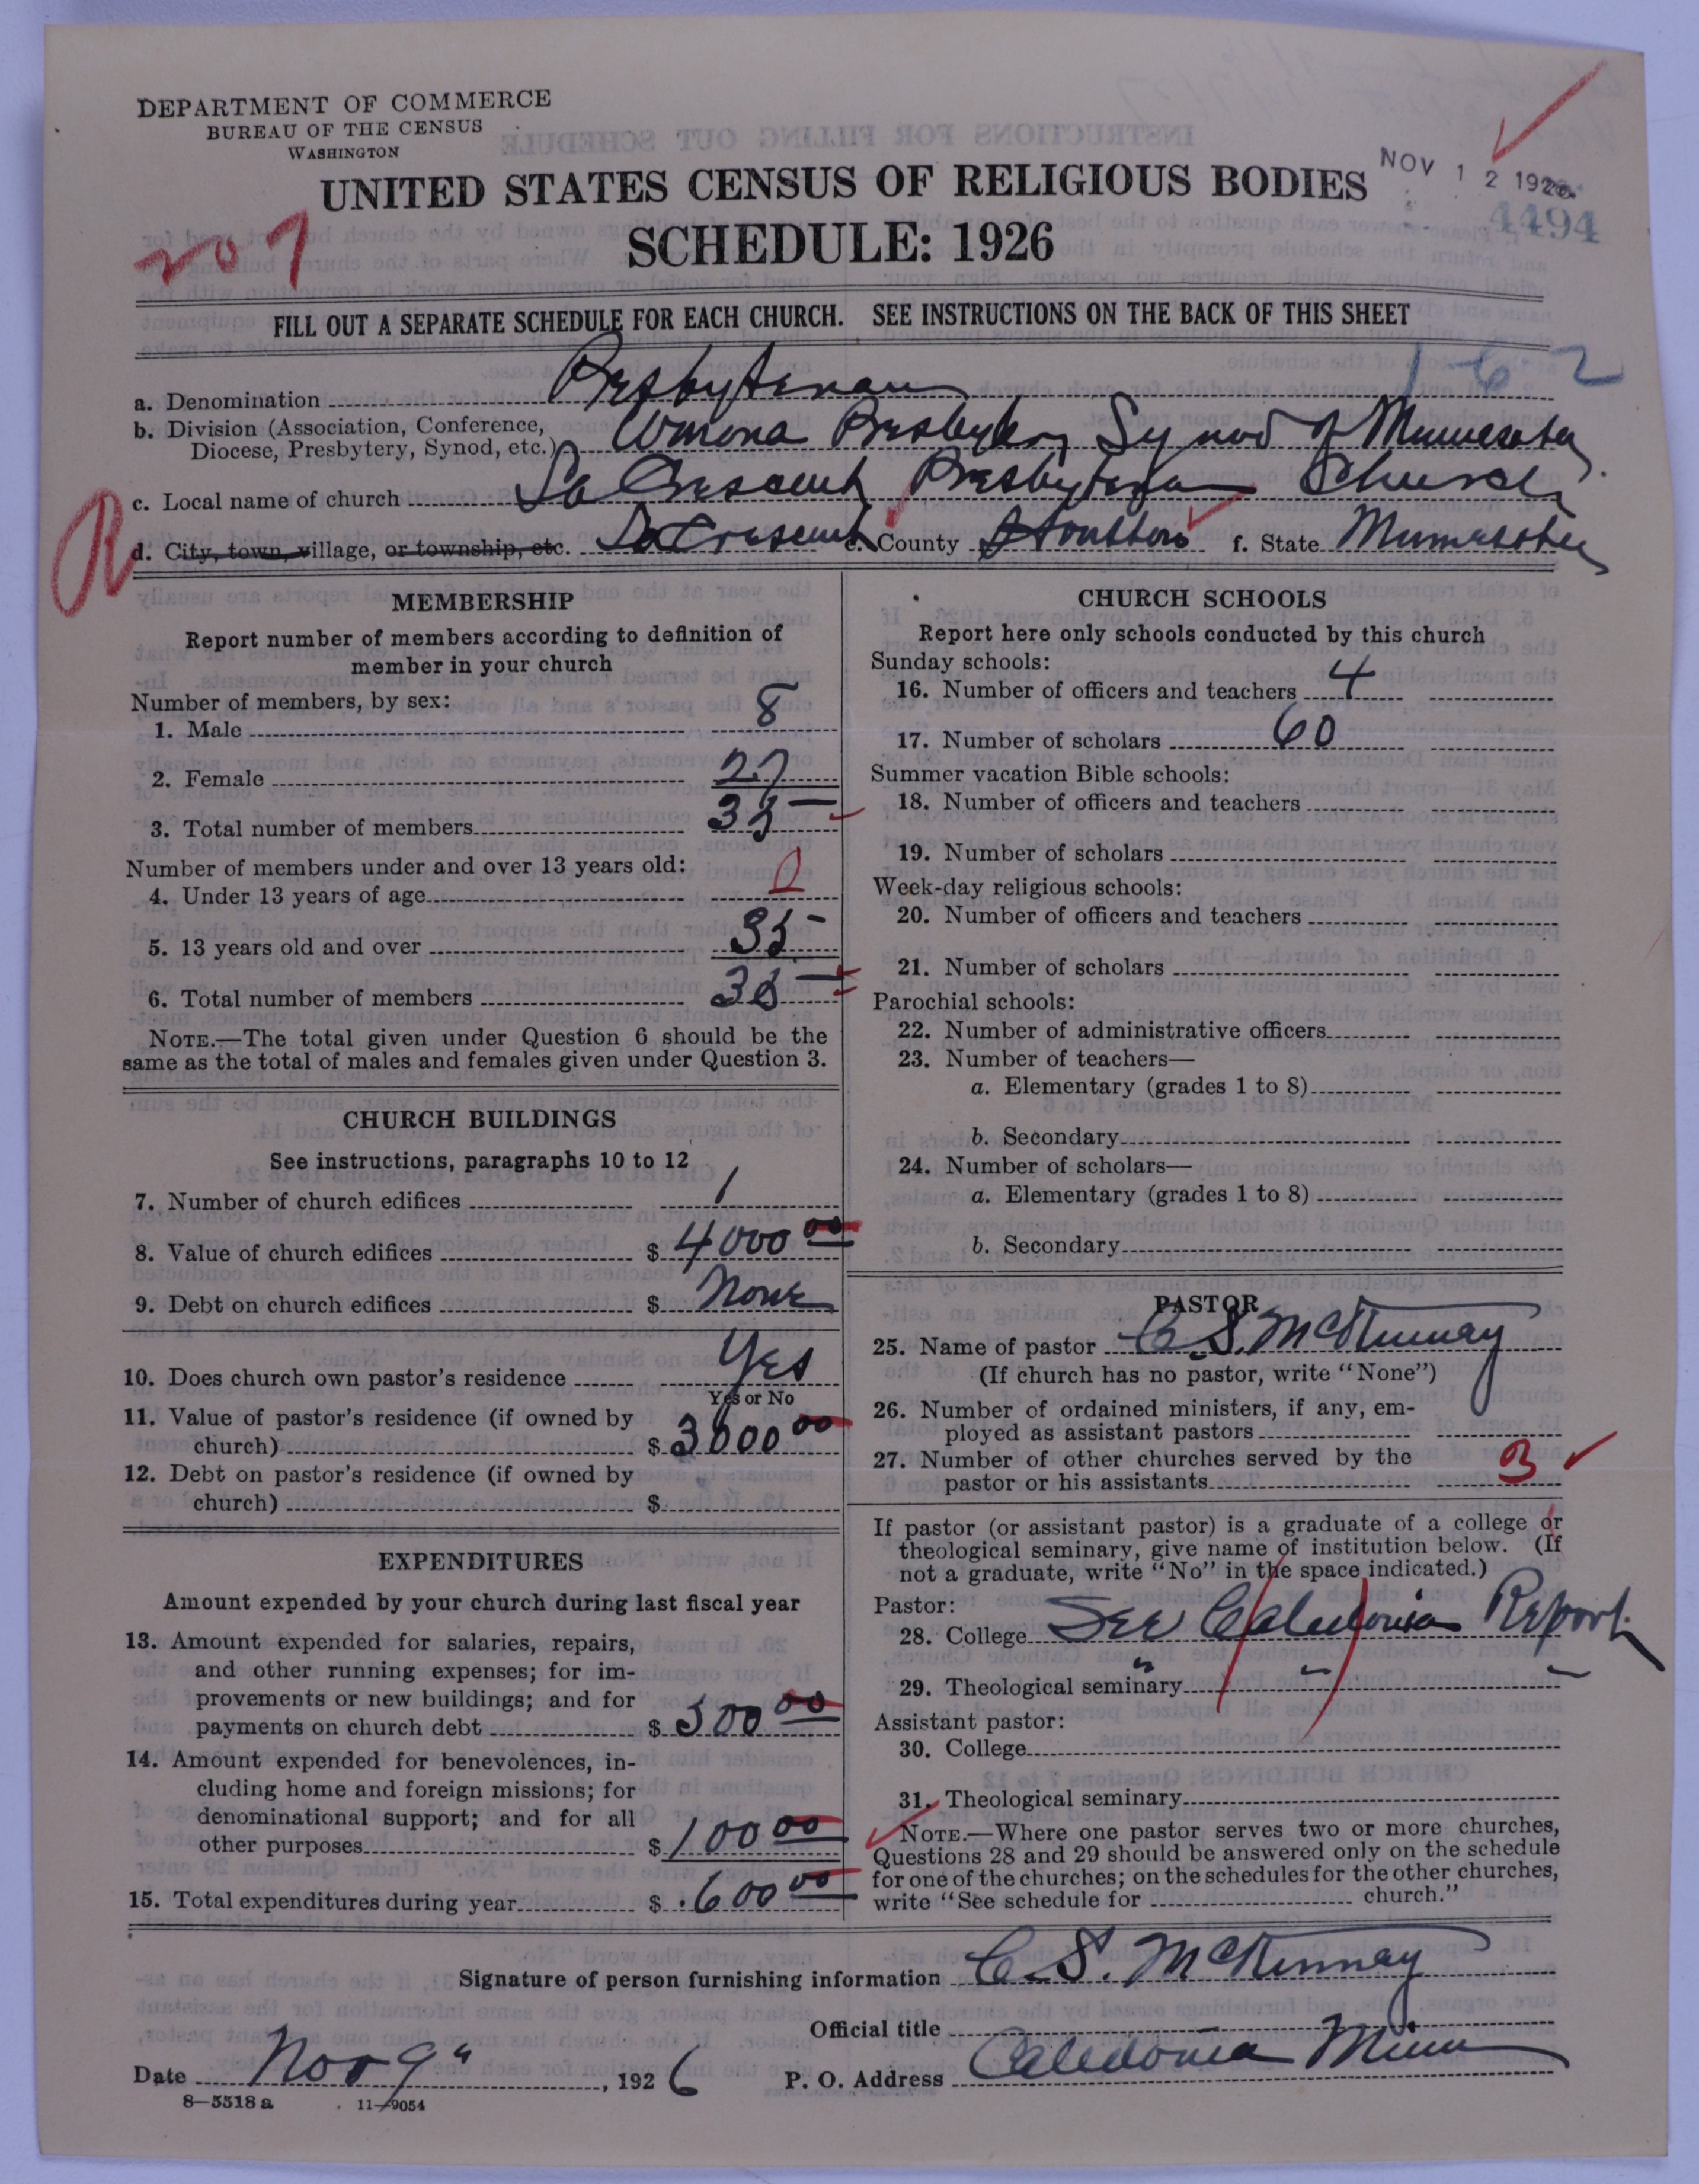 DEPARTMENT OF COMMERCE
BUREAU OF THE CENSUS
WASHINGTON
UNITED STATES CENSUS OF RELIGIOUS BODIES
NOV 12 1926
4494
SCHEDULE: 1926
207
FILL OUT A SEPARATE SCHEDULE FOR EACH CHURCH. SEE INSTRUCTIONS ON THE BACK OF THIS SHEET
1-62
a. Denomination Presbyterian
b. Division (Association, Conference, Diocese, Presbytery, Synod, etc.) Winona Presbytery Synod of Minnesota
c. Local name of church La Crescent Presbyterian Church
R
d. City, town, village, or township, etc. La Crescent e. County Houston f. State Minnesota
MEMBERSHIP
Report number of members according to definition of
member in your church
Number of members, by sex:
1. Male 8
2. Female 27
3. Total number of members 35
Number of members under and over 13 years old:
4. Under 13 years of age 0
5. 13 years old and over 35
6. Total number of members 35
NOTE.—The total given under Question 6 should be the
same as the total of males and females given under Question 3.
CHURCH BUILDINGS
See instructions, paragraphs 10 to 12
7. Number of church edifices 1
8. Value of church edifices $ 4000 00
9. Debt on church edifices $ None
10. Does church own pastor's residence Yes
Yes or No
11. Value of pastor's residence (if owned by
church) $ 3000 00
12. Debt on pastor's residence (if owned by
church) $
EXPENDITURES
Amount expended by your church during last fiscal year
13. Amount expended for salaries, repairs,
and other running expenses; for im-
provements or new buildings; and for
payments on church debt $ 500 00
14. Amount expended for benevolences, in-
cluding home and foreign missions; for
denominational support; and for all
other purposes $ 100 00
15. Total expenditures during year $ 600 00
CHURCH SCHOOLS
Report here only schools conducted by this church
Sunday schools:
16. Number of officers and teachers 4
17. Number of scholars 60
Summer vacation Bible schools:
18. Number of officers and teachers
19. Number of scholars
Week-day religious schools:
20. Number of officers and teachers
21. Number of scholars
Parochial schools:
22. Number of administrative officers
23. Number of teachers—
a. Elementary (grades 1 to 8)
b. Secondary
24. Number of scholars—
a. Elementary (grades 1 to 8)
b. Secondary
PASTOR
25. Name of pastor C. S. McKinnay
(If church has no pastor, write "None")
26. Number of ordained ministers, if any, em-
ployed as assistant pastors
27. Number of other churches served by the
pastor or his assistants 3
If pastor (or assistant pastor) is a graduate of a college or
theological seminary, give name of institution below. (If
not a graduate, write "No" in the space indicated.)
Pastor:
28. College See Caledonia Report
29. Theological seminary " " "
Assistant pastor:
30. College
31. Theological seminary
NOTE.—Where one pastor serves two or more churches,
Questions 28 and 29 should be answered only on the schedule
for one of the churches; on the schedules for the other churches,
write "See schedule for church."
Signature of person furnishing information C. S. McKinnay
Official title
Date Nov 9", 1926 P. O. Address Caledonia Minn
8—5518 a 11—9054